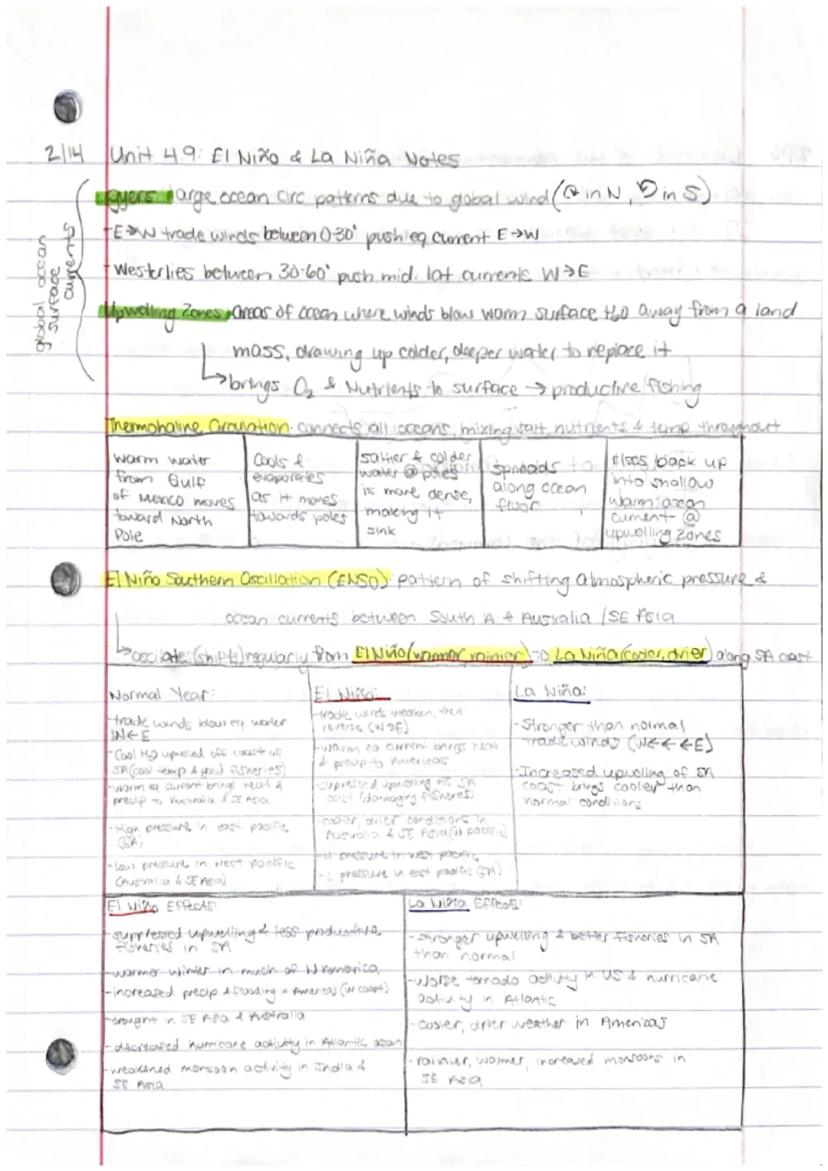 2/14 Unit 4.9: El Niño & La Niña Notes
gyers: large ocean circ patterns due to global wind (↻ in N, ↺ in S)
-E→W trade winds between 0-30° push eq current E→W
-Westerlies between 30-60° push mid. lat currents W→E
global ocean
surface
currents
Upwelling Zones: areas of ocean where winds blow warm surface H2O away from a land
mass, drawing up colder, deeper water to replace it
↳brings O2 & Nutrients to surface → productive fishing
Thermohaline Circulation: connects all oceans, mixing salt, nutrients & temp throughout
warm water
from Gulf
of Mexico moves
toward North
Pole
Cools &
evaporates
as it moves
towards poles
saltier & colder
water @ poles
is more dense,
making it
sink
spreads
along ocean
floor
rises back up
into shallow
warm ocean
current @
upwelling zones
El Niño Southern Oscillation (ENSO): pattern of shifting atmospheric pressure &
ocean currents between South A & Australia / SE Asia
↳oscilates (shifts) regularly from El Niño (warmer, rainier) → La Niña (cooler, drier) along SA coast
Normal Year:
-trade winds blow eq water
W←E
-Cool H2O upwelled off coast of
SA (cool temp & good fisheries)
-warm eq current brings heat &
precip to Australia & SE Asia
-High pressure in east pacific
(SA)
-Low pressure in west pacific
(Australia & SE Asia)
El Niño:
-trade winds weaken, then
reverse (W→E)
-warm eq current brings heat
& precip to Americas
-supressed upwelling off SA
coast (damaging fisheries)
-cooler, drier conditions in
Australia & SE Asia (W pacific)
-H pressure in west pacific
-L pressure in east pacific (SA)
La Niña:
-Stronger than normal
trade winds (W←←←E)
-Increased upwelling of SA
coast brings cooler than
normal conditions
El Niño Effects:
-suppressed upwelling & less productive
fisheries in SA
-warmer winter in much of N America
-increased precip & flooding in Americas (W coast)
-drought in SE Asia & Australia
-decreased hurricane activity in Atlantic ocean
-weakened monsoon activity in India &
SE Asia
La Niña Effects:
-Stronger upwelling & better fisheries in SA
than normal
-worse tornado activity in US & hurricane
activity in Atlantic
-cooler, drier weather in Americas
-rainier, warmer, increased monsoons in
SE Asia